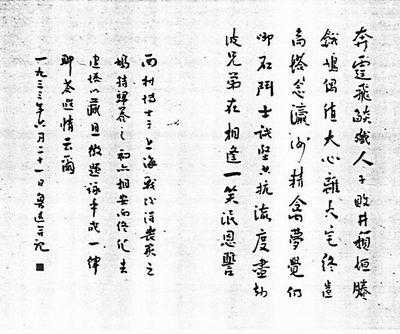 奔霆飛熛殲人子敗井頹垣賸
餓鳩偶值大心離火宅終遺
高塔念瀛洲精禽夢覺仍
啣石鬥士誠堅共抗流度盡劫
波兄弟在相逢一笑泯恩讐
西村博士於上海戰後得喪家之
鳩持歸養之初亦相安而終化去
建塔以藏且徵題詠率成一律
聊荅遐情云爾
一九三三年六月二十一日魯迅并記